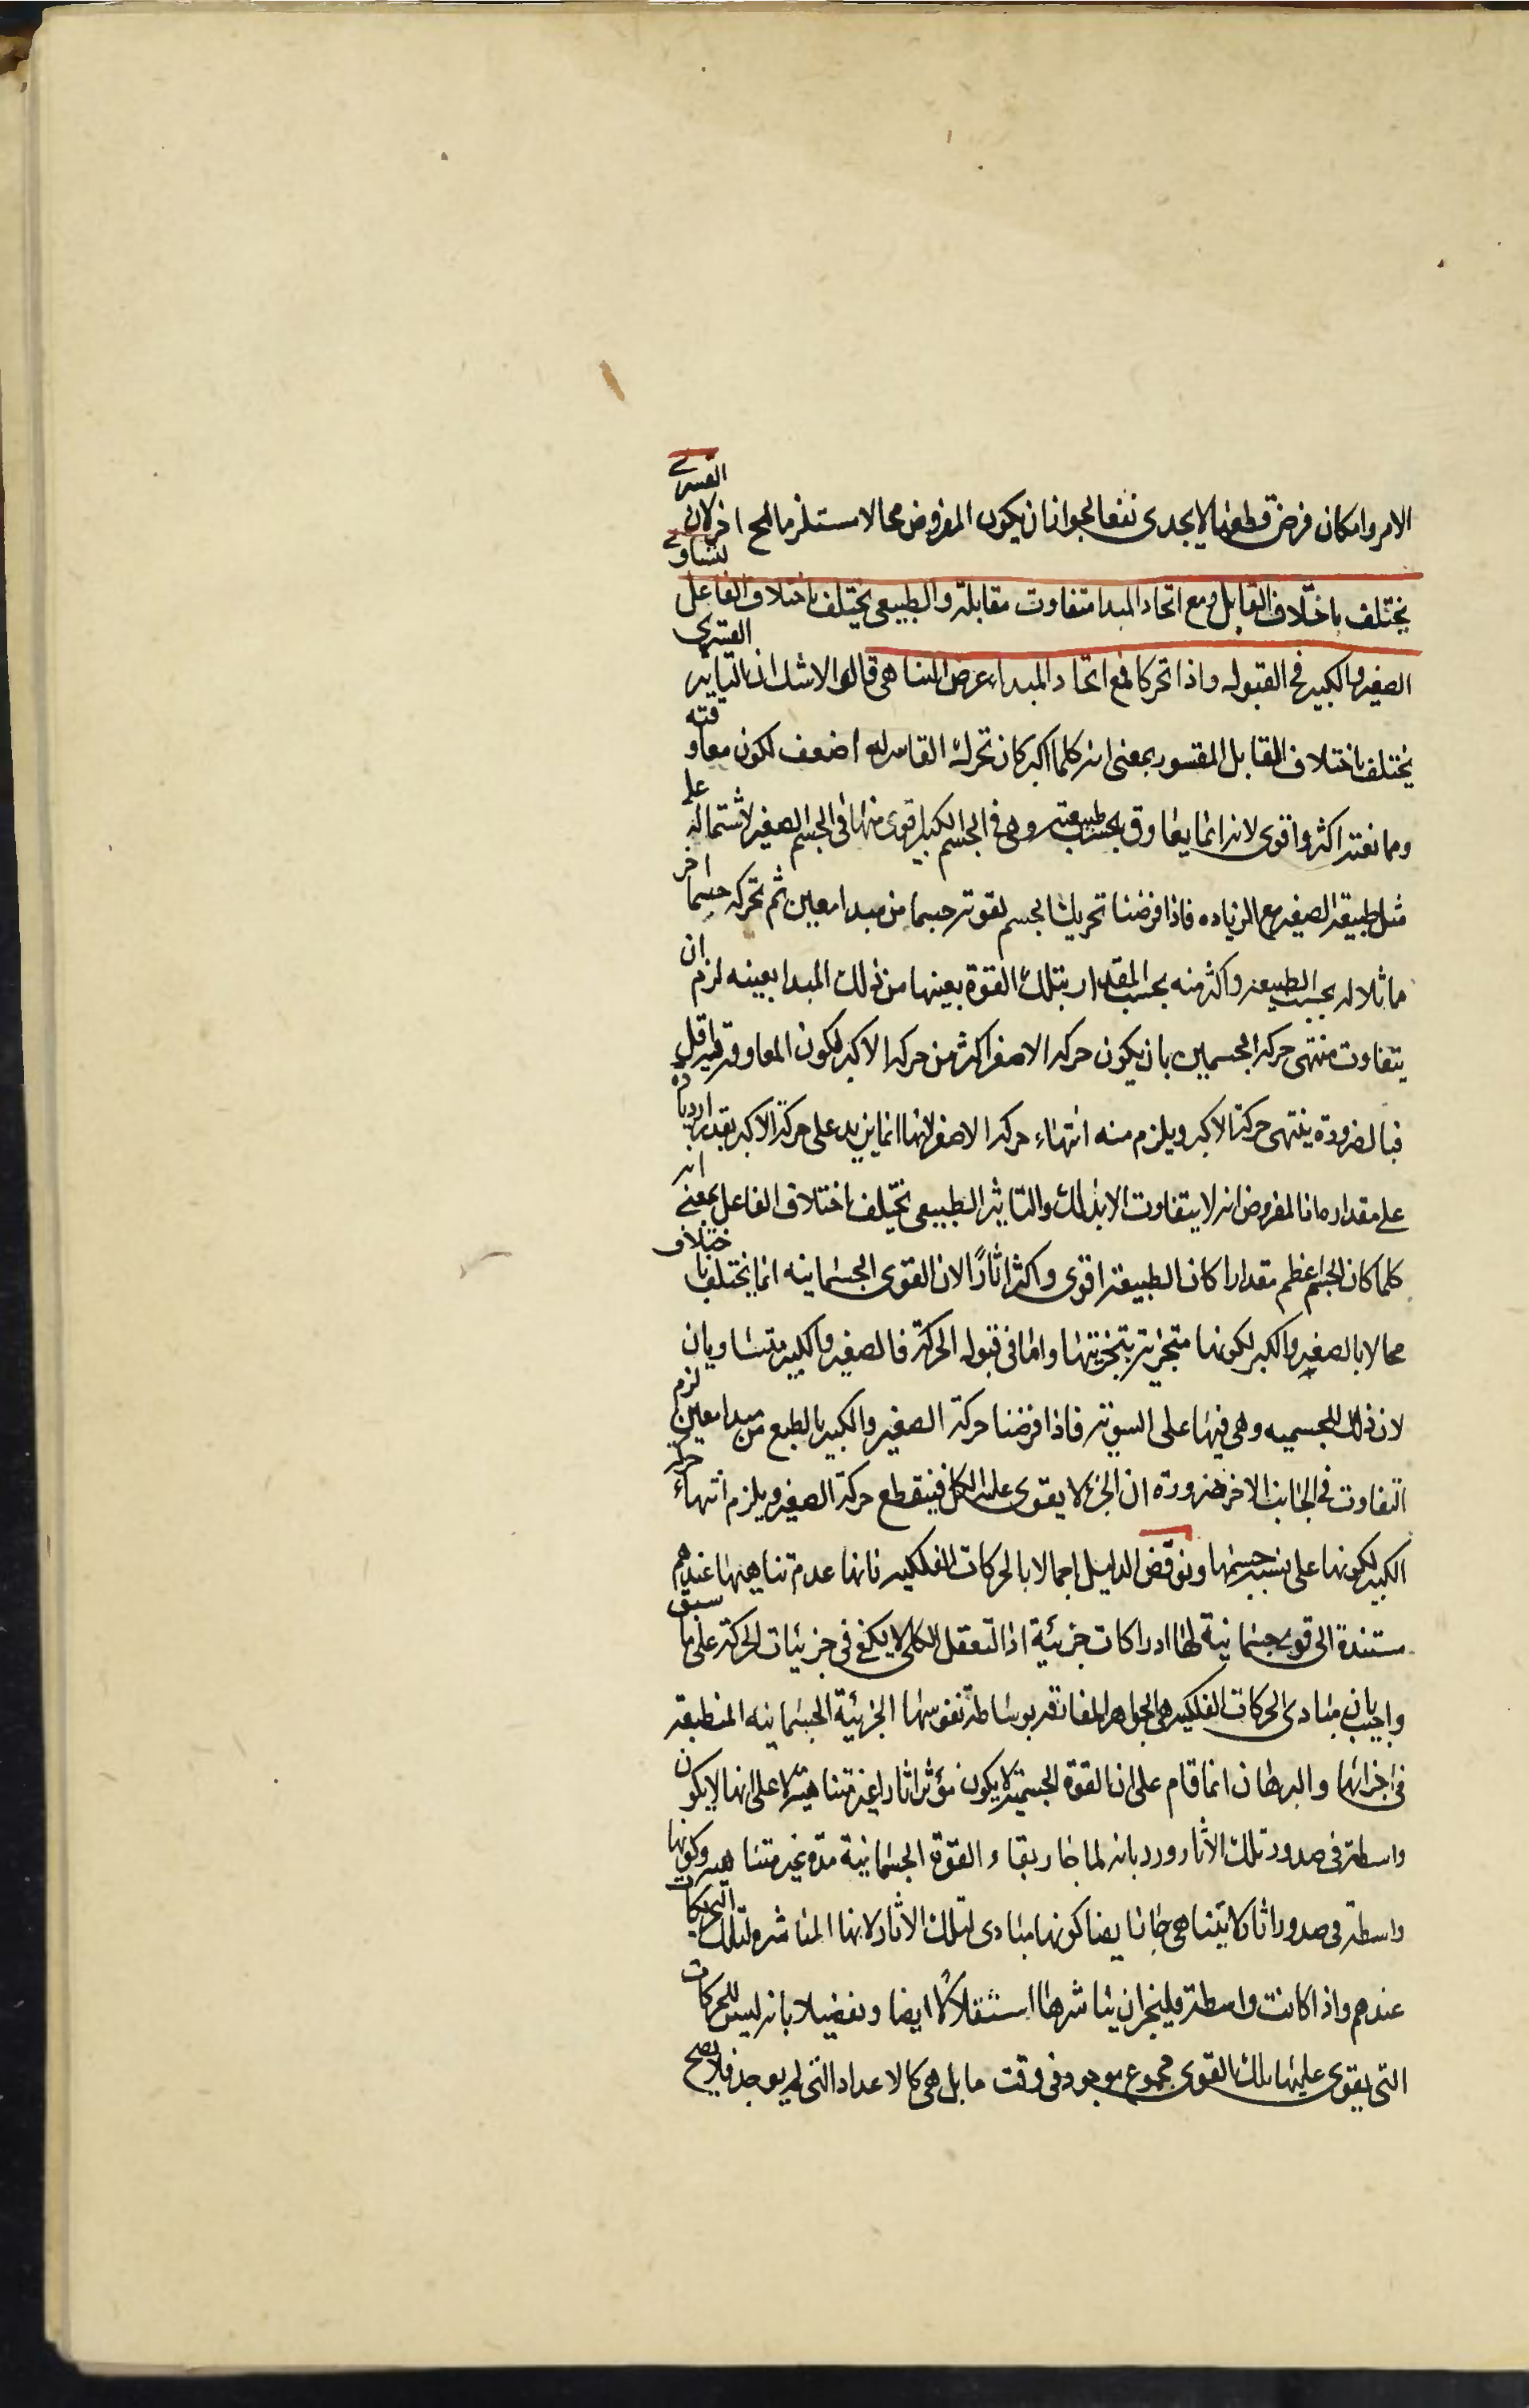 الامر وامكان فرض قطعها لا يجدى نفعا لجواز ان يكون المفروض محالا مستلزما لمح اخر لان القسرى
يختلف باختلاف القابل ومع اتحاد المبدا متفاوت مقابله والطبيعى يختلف باختلاف الفاعل لتساوى
الصغير والكبير فى القبول واذا تحركا مع اتحاد المبداء عرض التناهى قالوا لا شك ان التاثير القسرى
يختلف باختلاف القابل المقسور بمعنى انه كلما كان اكبر كان تحريك القاسر له اضعف لكون معاوقته
وممانعته اكثر واقوى لانه انما يعاوق بحسب طبيعته وهى فى الجسم الكبير اقوى منها فى الجسم الصغير لاشتماله على
مثل طبيعة الصغير مع الزياده فاذا فرضنا تحريك جسم لقوته جسما من مبدا معين ثم تحركه جسما اخر
مماثلا له بحسب الطبيعه واكثر منه بحسب المقدار بتلك القوة بعينها من ذلك المبدا بعينه لزم ان
يتفاوت منتهى حركة الجسمين بان يكون حركة الاصغر اكثر من حركة الاكبر لكون المعاوقة فيه اقل
فبالضرورة ينتهى حركة الاكبر ويلزم منه انتهاء حركة الاصغر لانها انما يزيد على حركة الاكبر بقدر ازدياده
على مقداره اذ المفروض انه لا يتفاوت الا بذلك والتاثير الطبيعى يختلف باختلاف الفاعل بمعنى انه
كلما كان الجسم اعظم مقدارا كان الطبيعة اقوى واكثر اثارًا لان القوى الجسمانيه انما يختلف باختلاف
محالا بالصغير والكبر لكونها متجزية بتجزيتها واما فى قبول الحركة فالصغير والكبير متساويان
لان ذلك للجسميه وهى فيهما على السوية فاذا فرضنا حركة الصغير والكبير بالطبع من مبدا معين لزم
التفاوت فى الجانب الاخر ضرورة ان الجزء لا يقوى على الكل فينقطع حركة الصغير ويلزم انتهاء حركة
الكبير لكونها على نسبة جسمها ونوقض الدليل اجمالا بالحركات الفلكيه فانها عدم تناهيها عندهم
مستندة الى قوى جسمانية لها ادراكات جزئية اذ التعقل الكلى لا يكفى فى جزئيات الحركة على ما سبق
واجيب بان مبادى الحركات الفلكيه هى الجواهر المفارقه بوساطة نفوسها الجزئية الجسمانيه المنطبعة
فى اجزائها والبرهان انما قام على ان القوة الجسمية لا يكون مؤثر اثارا غير متناهية لا على انها لا يكون
واسطة فى صدور تلك الاثار ورد بانه لما جاز بقاء القوة الجسمانية مدة غير متناهيه وكونها
واسطة فى صدور اثار لا يتناهى جاز ايضا كونها مبادى لتلك الاثار لانها المباشرة لتلك التحريكات
عندهم واذا كانت واسطة فليجز ان يباشرها استقلالًا ايضا وتفصيلا بانه ليس للحركات
التى يقوى عليها تلك القوى مجموع موجود فى وقت ما بل هى كالاعداد التى لم يوجد فلا يصح